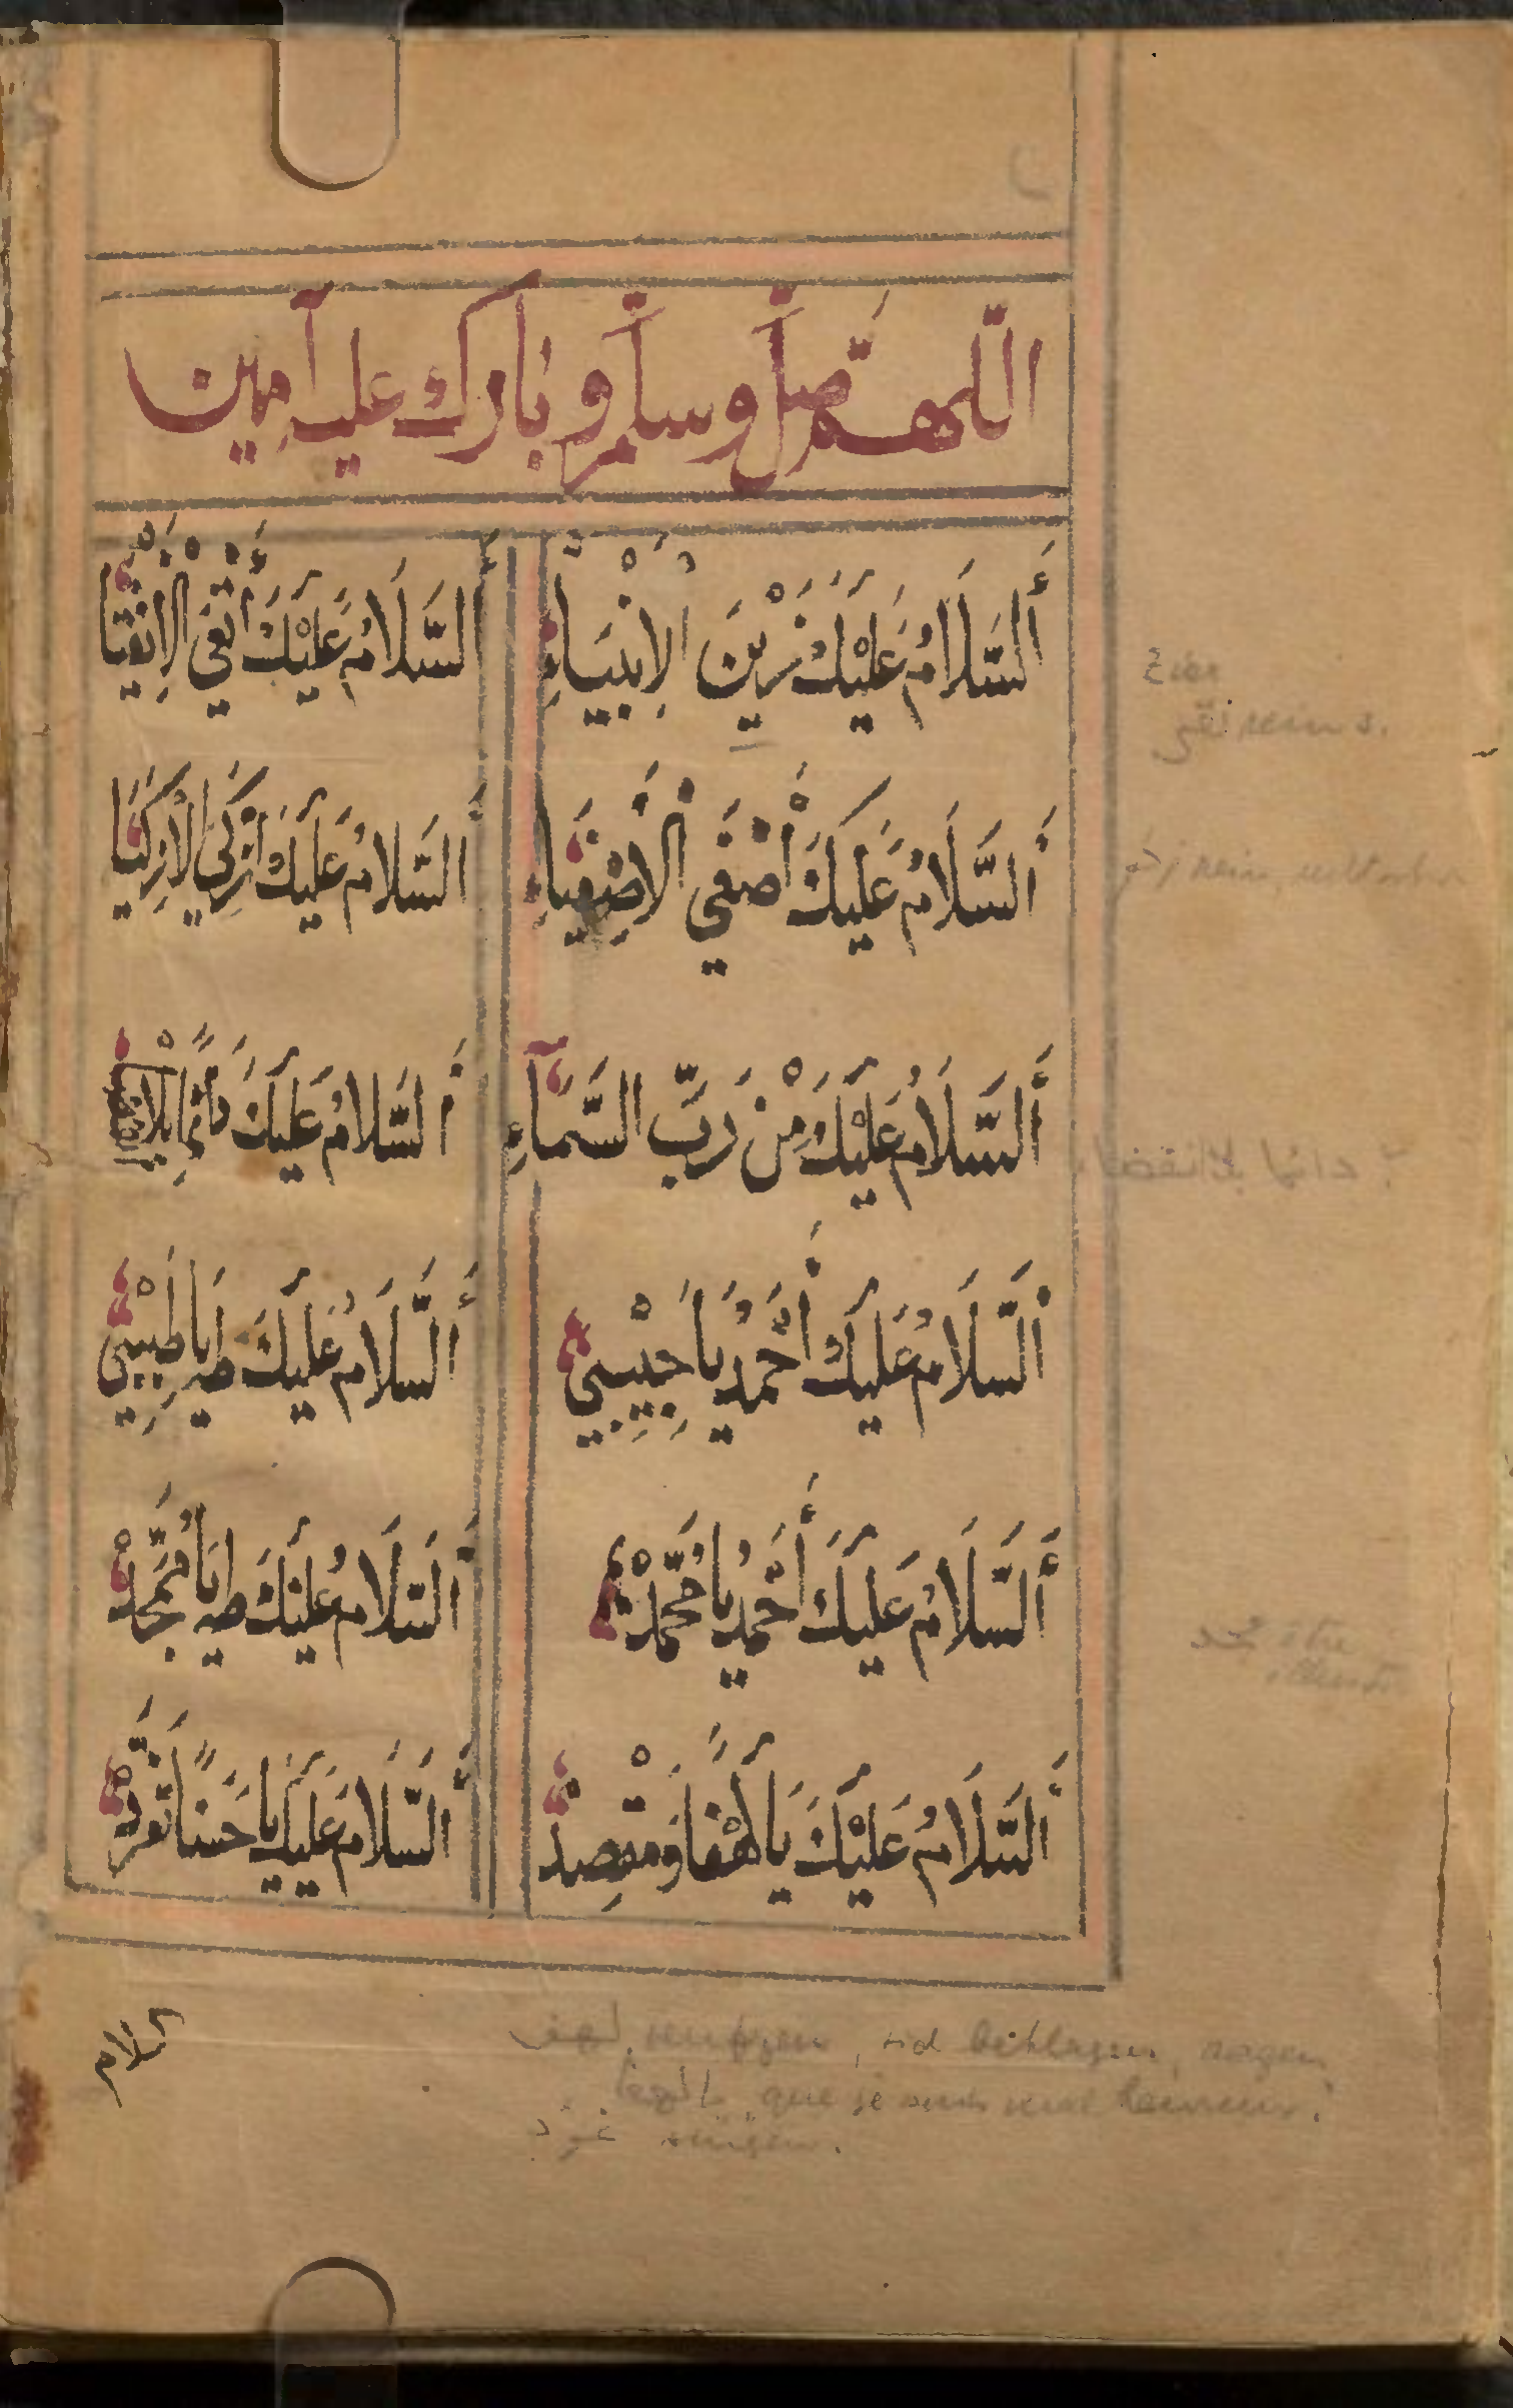 اللّهمّ صلّ وسلّم وبارك عليه آمين
أَلسَّلَامُ عَلَيْكَ زَيْنَ الْاَنْبِيَاءِ
أَلسَّلَامُ عَلَيْكَ أَتْقَى الْاَتْقِيَا
أَلسَّلَامُ عَلَيْكَ أَصْفَي الْاَصْفِيَاءِ
أَلسَّلَامُ عَلَيْكَ أَزْكَي الْاَزْكِيَا
أَلسَّلَامُ عَلَيْكَ مِنْ رَبِّ السَّمَآءِ
أَلسَّلَامُ عَلَيْكَ دَائِمًا بِلَا
أَلسَّلَامُ عَلَيْكَ أَحْمَدُ يَا حَبِيْبِي
أَلسَّلَامُ عَلَيْكَ طٰهٰ يَا طَبِيْبِي
أَلسَّلَامُ عَلَيْكَ أَحْمَدُ يَا مُحَمَّدْ
أَلسَّلَامُ عَلَيْكَ طٰهٰ يَا مُمَجَّدْ
أَلسَّلَامُ عَلَيْكَ يَا لَهْفًا وَمَقْصِدْ
أَلسَّلَامُ عَلَيْكَ يَا حَسَنًا تَفَرَّدْ
السلام